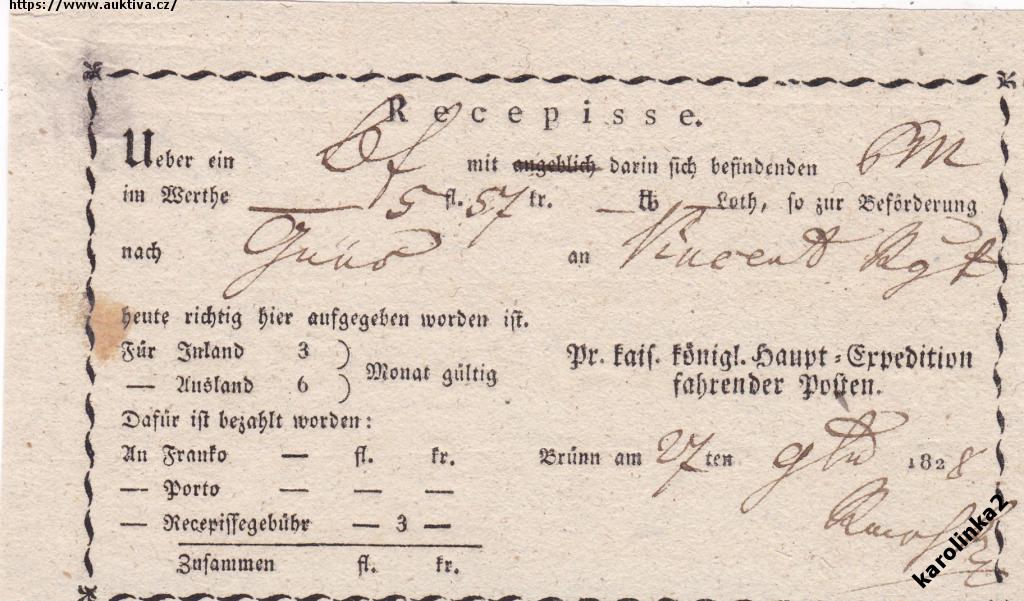 https://www.auktiva.cz/
Recepisse.
Ueber ein Bf mit angeblich darin sich befindenden CM
im Werthe — 5 fl. 57 kr. — ℔ — Loth, so zur Beförderung
nach Güns an Vincent Rgt
heute richtig hier aufgegeben worden ist.
Für Inland 3 ) Monat gültig
— Ausland 6 )
Pr. kais. königl. Haupt-Expedition
fahrender Posten.
Dafür ist bezahlt worden:
An Franko — fl. kr.
Brünn am 27ten 9br 1828
— Porto — — —
— Recepissegebühr — 3 —
Zusammen fl. kr.
karolinka2